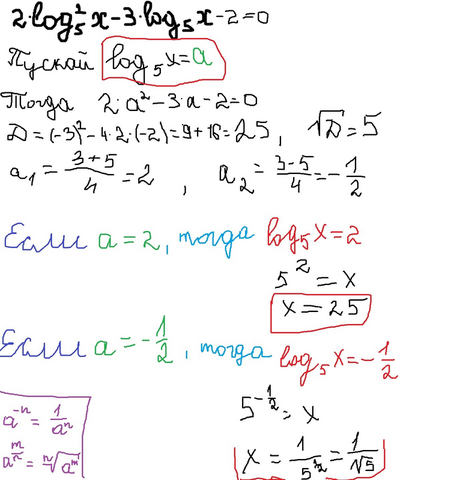 2·log₅²x-3·log₅x-2=0
Пускай log₅x=a
Тогда 2·a²-3·a-2=0
D=(-3)²-4·2·(-2)=9+16=25, √D=5
a₁=(3+5)/4=2, a₂=(3-5)/4=-1/2
Если a=2, тогда log₅x=2
5²=x
x=25
Если a=-1/2, тогда log₅x=-1/2
5^(-1/2)=x
a^(-n)=1/aⁿ
a^(m/n)=ⁿ√aᵐ
x=1/5^(1/2)=1/√5